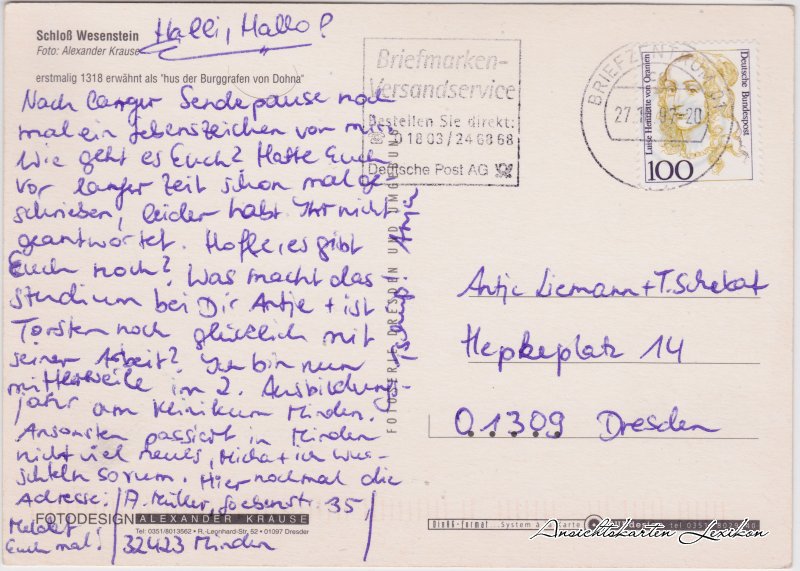 Schloß Wesenstein
Foto: Alexander Krause
erstmalig 1318 erwähnt als "hus der Burggrafen von Dohna"
Halli, Hallo!
Nach langer Sendepause noch
mal ein Lebenszeichen von mir.
Wie geht es Euch? Hatte Euch
vor langer Zeit schon mal ge
schrieben, leider habt Ihr nicht
geantwortet. Hoffe, es gibt
Euch noch? Was macht das
Studium bei Dir Antje + ist
Torsten noch glücklich mit
seiner Arbeit? Ich bin nun
mittlerweile im 2. Ausbildungs-
jahr am Klinikum Minden.
Ansonsten passiert in Minden
nicht viel neues, Micha + ich wu-
schteln so rum. Hier nochmal die
Adresse: A. Müller, Goebenstr 35,
32423 Minden
Meldet
Euch mal!
Tschüß! Anja
FOTODESIGN ALEXANDER KRAUSE
Tel: 0351/8013562 • R.-Leonhard-Str. 52 • 01097 Dresden
FOTOSERIE DRESDEN UND UMGEBUNG
Briefmarken-
Versandservice
Bestellen Sie direkt:
0 18 03/24 68 68
Deutsche Post AG
BRIEFZENTRUM
Luise Henriette von Oranien
Deutsche Bundespost
100
Antje Liemann + T. Schekat
Hepkeplatz 14
01309 Dresden
System
Ansichtskarten Lexikon